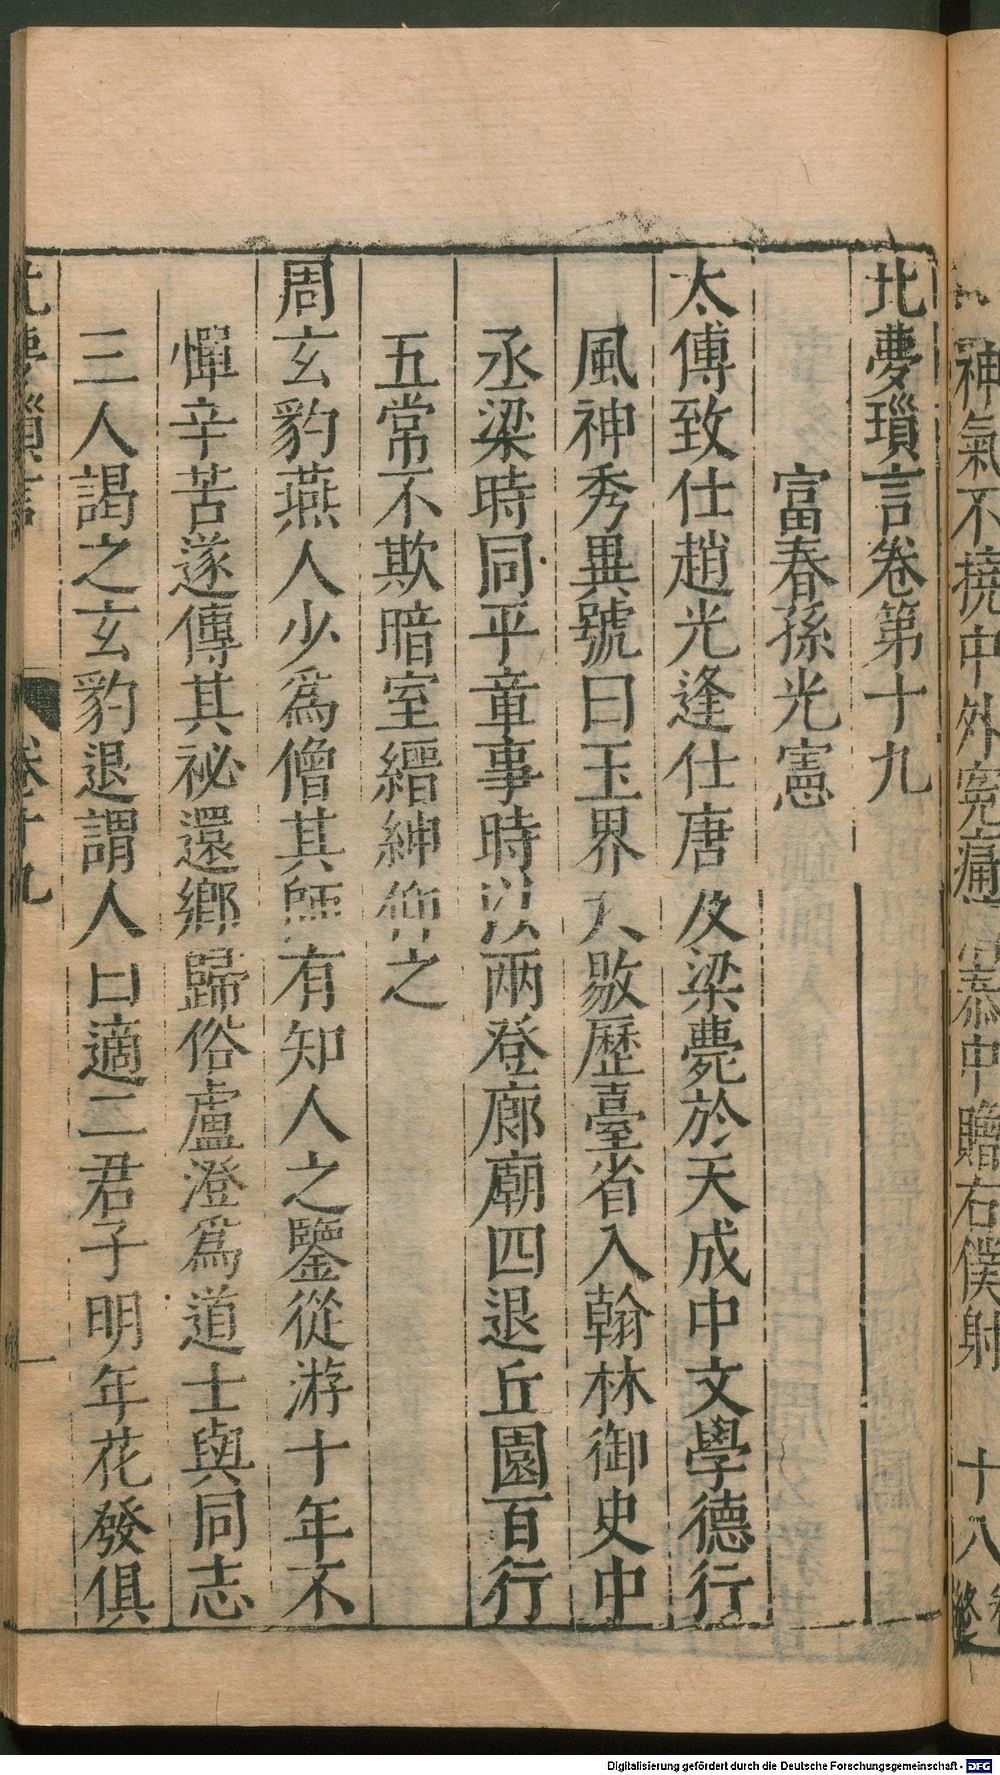 神氣不撓中外寃痛
中贈右僕射
十八
北夢瑣言卷第十九
富春孫光憲
太傅致仕趙光逢仕唐及梁薨於天成中文學德行
風神秀異號曰玉界尺敭歷臺省入翰林御史中
丞梁時同平章事時以兩登廊廟四退丘園百行
五常不欺暗室縉紳仰之
周玄豹燕人少爲僧其師有知人之鑒從游十年不
憚辛苦遂傳其祕還鄉歸俗盧澄爲道士與同志
三人謁之玄豹退謂人曰適二君子明年花發俱
北夢瑣言
卷十九
一
Digitalisierung gefördert durch die Deutsche Forschungsgemeinschaft - DFG